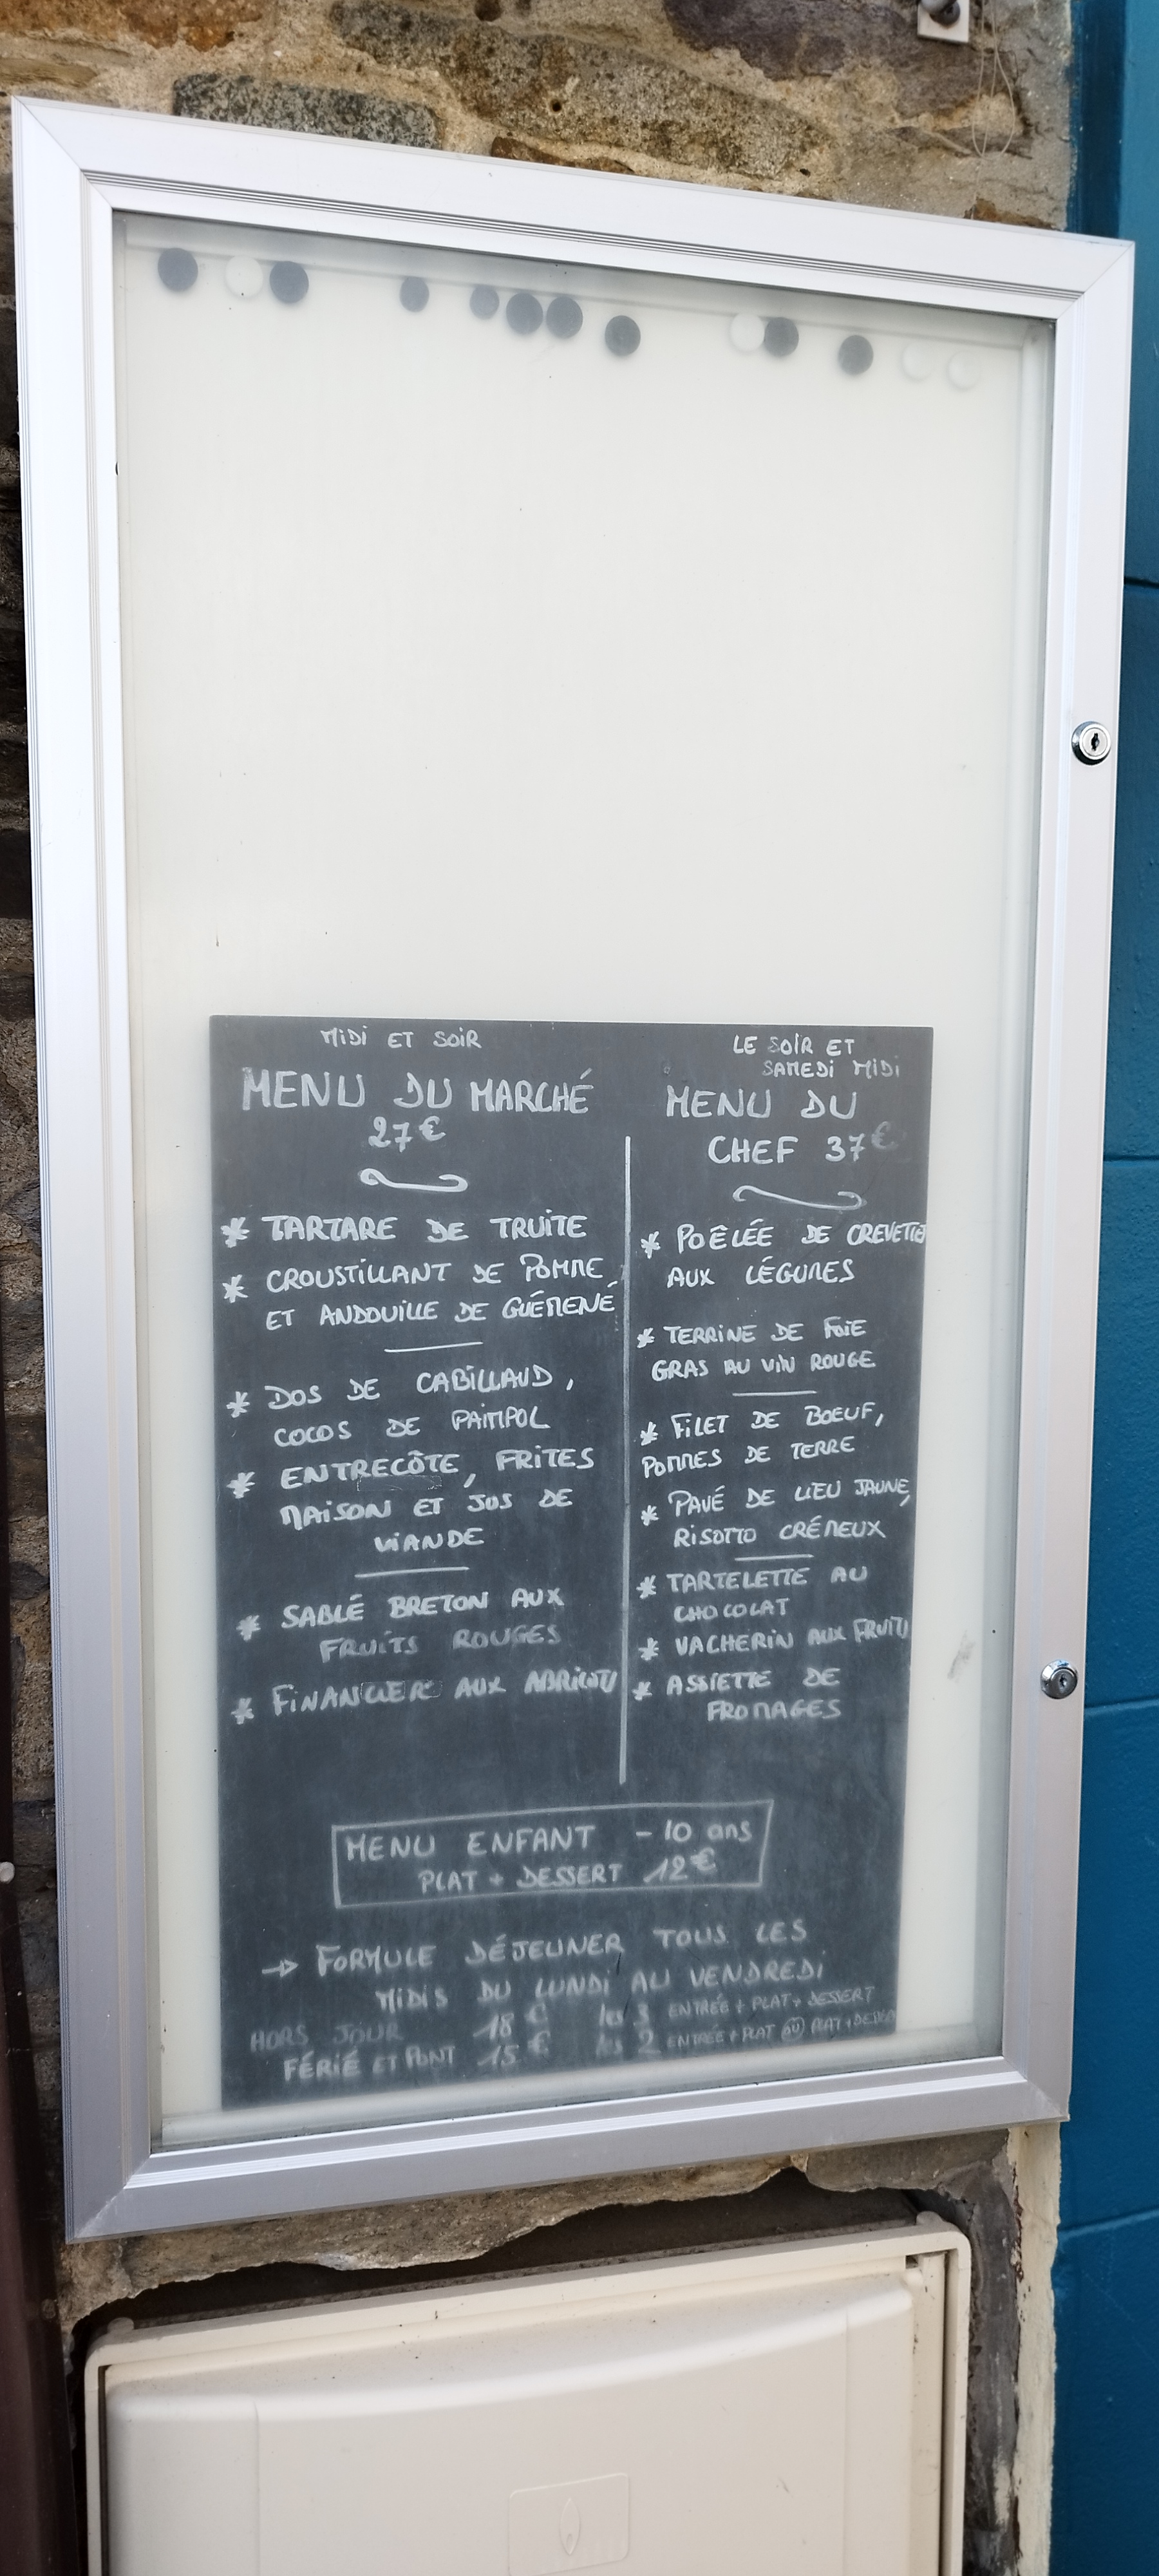 MIDI ET SOIR
MENU DU MARCHÉ
27€
* TARTARE DE TRUITE
* CROUSTILLANT DE POMME
ET ANDOUILLE DE GUÉMENÉ
* DOS DE CABILLAUD,
COCOS DE PAIMPOL
* ENTRECÔTE, FRITES
MAISON ET JUS DE
VIANDE
* SABLÉ BRETON AUX
FRUITS ROUGES
* FINANCIER AUX ABRICOTS
LE SOIR ET
SAMEDI MIDI
MENU DU
CHEF 37€
* POÊLÉE DE CREVETTES
AUX LÉGUMES
* TERRINE DE FOIE
GRAS AU VIN ROUGE
* FILET DE BOEUF,
POMMES DE TERRE
* PAVÉ DE LIEU JAUNE,
RISOTTO CRÉMEUX
* TARTELETTE AU
CHOCOLAT
* VACHERIN AUX FRUITS
* ASSIETTE DE
FROMAGES
MENU ENFANT - 10 ans
PLAT + DESSERT 12€
→ FORMULE DÉJEUNER TOUS LES
MIDIS DU LUNDI AU VENDREDI
HORS JOUR 18 € les 3 ENTRÉE + PLAT + DESSERT
FÉRIÉ ET PONT 15 € les 2 ENTRÉE + PLAT OU PLAT + DESSERT